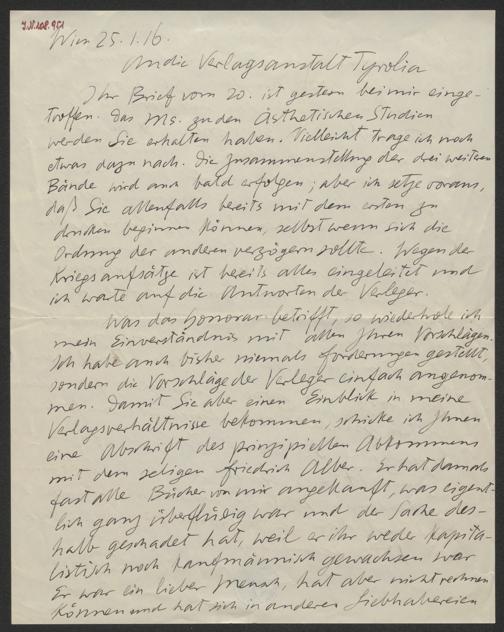 I.N. 208.951
Wien 25.1.16.
An die Verlagsanstalt Tyrolia
Ihr Brief vom 20. ist gestern bei mir einge-
troffen. Das Ms. zu den Ästhetischen Studien
werden Sie erhalten haben. Vielleicht trage ich noch
etwas dazu nach. Die Zusammenstellung der drei weiteren
Bände wird auch bald erfolgen; aber ich setze voraus,
daß Sie allenfalls bereits mit dem ersten zu
drucken beginnen können, selbst wenn sich die
Ordnung der anderen verzögern sollte. Wegen der
Kriegsaufsätze ist bereits alles eingeleitet und
ich warte auf die Antworten der Verleger.
Was das Honorar betrifft, so wiederhole ich
mein Einverständnis mit allen Ihren Vorschlägen.
Ich habe auch bisher niemals Forderungen gestellt,
sondern die Vorschläge der Verleger einfach angenom-
men. Damit Sie aber einen Einblick in meine
Verlagsverhältnisse bekommen, schicke ich Ihnen
eine Abschrift des prinzipiellen Abkommens
mit dem seligen Friedrich Alber. Er hat damals
fast alle Bücher von mir angekauft, was eigent-
lich ganz überflüssig war und der Sache des-
halb geschadet hat, weil er ihr weder kapita-
listisch noch kaufmännisch gewachsen war
Er war ein lieber Mensch, hat aber nicht rechnen
können und hat sich in anderen Liebhabereien